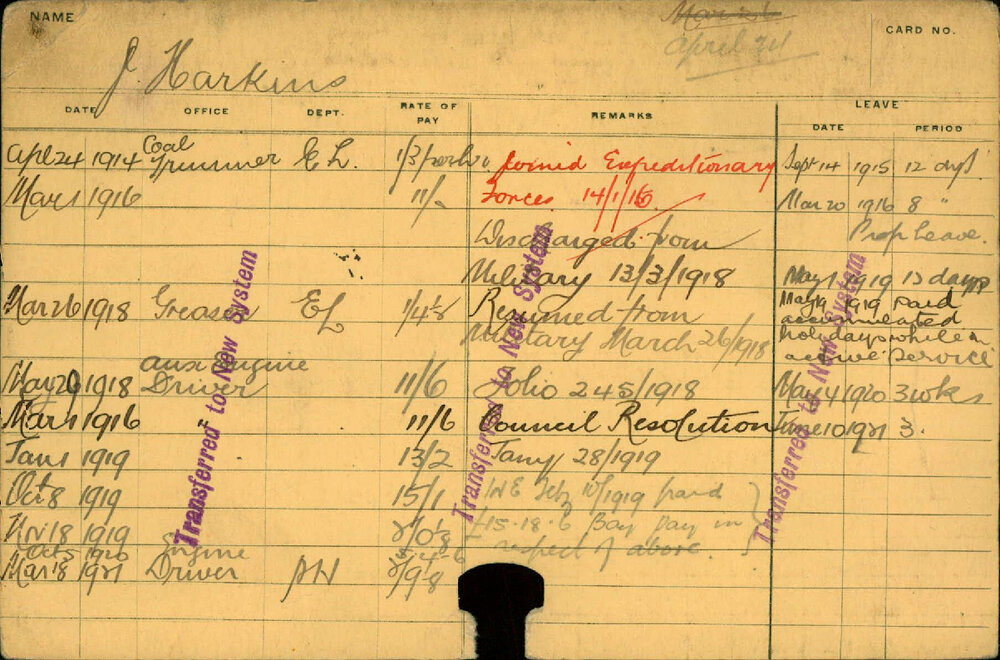 NAME
April 24
CARD NO.
J. Harkins
DATE OFFICE DEPT. RATE OF PAY REMARKS LEAVE
DATE PERIOD
Apl 24 1914 Coal Trimmer E L. 1/3 Joined Expeditionary Sept 14 1915 12 dys.
Mar 1 1916 11/- Forces 14/1/16 Mar 20 1916 8 "
Discharged from Prop Leave.
Military 13/3/1918 May 1 1919 days
Mar 26 1918 Greaser EL 1/4½ Resumed from May 9 1919 paid
accumulated
Military March 26/1918 holidays while on
active service
Aux Engine
May 20 1918 Driver 11/6 Folio 245/1918 May 4 1920 3 wks
Mar 1 1916 11/6 Council Resolution June 10 1921 3.
Jan 1 1919 13/2 Jany 28/1919
Oct 8 1919 15/1 1919 paid
Nov 18 1919 £15-18-6 Bay Pay in
Oct 5 1920 Engine respect of above.
Mar 18 1921 Driver PH
Transferred to New System
Transferred to New System
Transferred to New System